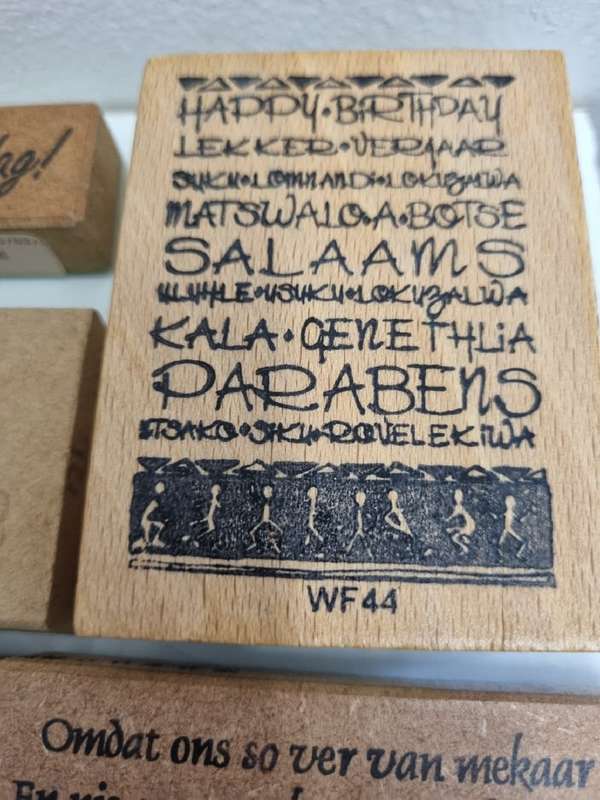 ag!
HAPPY•BIRTHDAY
LEKKER•VERJAAR
SUKU•LOMNANDI•LOKUZALWA
MATSWALO•A•BOTSE
SALAAMS
KALA•GENETHLIA
PARABENS
ITSAKO•SIKU•ROVELEKIWA
WF44
Omdat ons so ver van mekaar